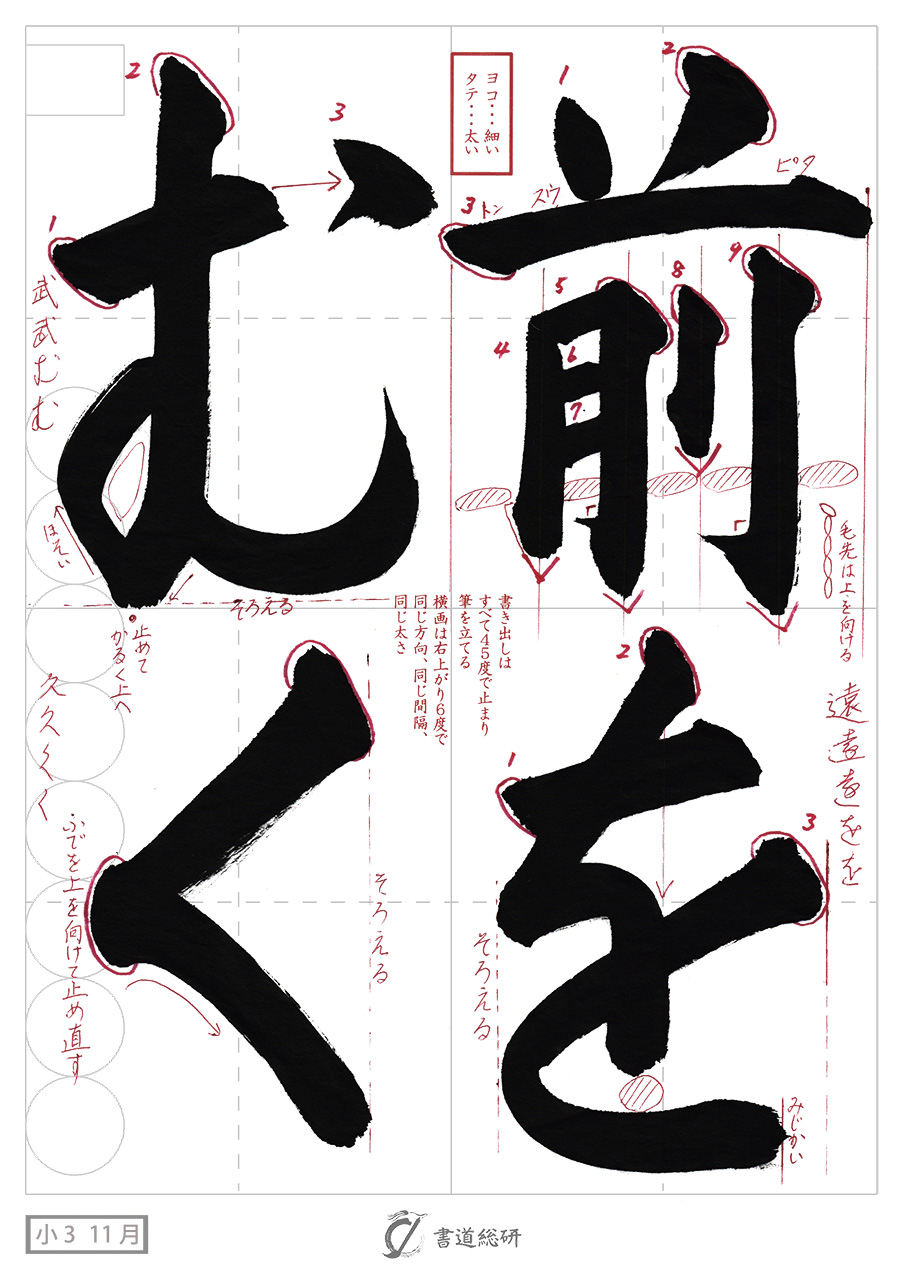 前を
むく
ヨコ・・・細い
タテ・・・太い
1
2
3
トン
スウ
ピタ
4
5
6
7
8
9
毛先は上を向ける
書き出しは
すべて45度で止まり
筆を立てる
横画は右上がり6度で
同じ方向、同じ間隔、
同じ太さ
遠遠をを
1
2
3
そろえる
みじかい
1
2
3
武武むむ
ほそい
そろえる
止めて
かるく上へ
久久くく
ふでを上を向けて止め直す
そろえる
小3 11月
書道総研